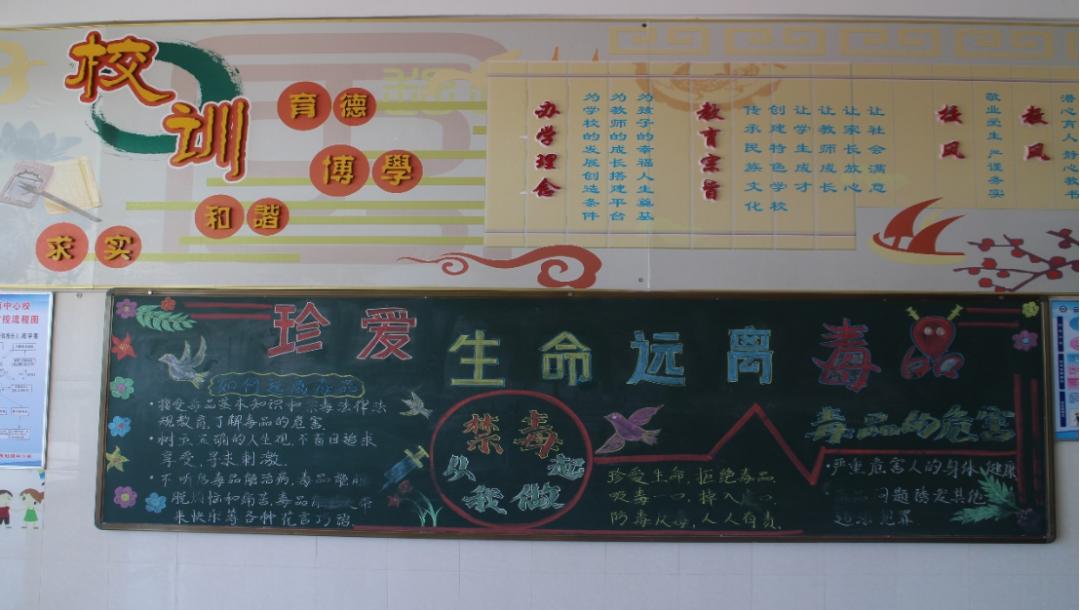 校训
育德
博學
和諧
求实
办学理念
为孩子的幸福人生奠基
为教师的成长搭建平台
为学校的发展创造条件
教育宗旨
让社会满意
让家长放心
让教师成长
让学生成才
创建特色学校
传承民族文化
校风
敬业爱生 严谨务实
教风
潜心育人 舒心教书
中心校
流程图
珍爱生命远离毒品
接受毒品基本知识和禁毒法律法
规教育,了解毒品的危害.
树立正确的人生观,不盲目追求
享受,寻求刺激.
不听信毒品能治病,毒品能解
脱烦恼和痛苦,毒品
来快乐等各种花言巧语
禁毒
从我做起
珍爱生命,拒绝毒品
吸毒一口,掉入虎口
防毒反毒,人人有责.
毒品的危害
严重危害人的身体健康
问题诱发其他
犯罪